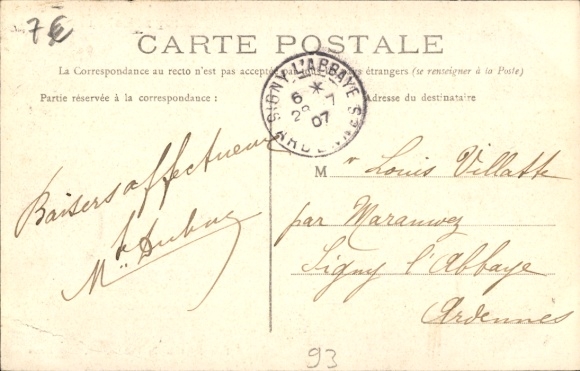 7€
CARTE POSTALE
La Correspondance au recto n'est pas acceptée par tous les pays étrangers (se renseigner à la Poste)
Partie réservée à la correspondance :
Adresse du destinataire
SIGNY-L'ABBAYE
6 * 
28 - 7
07
ARDENNES
Baisers affectueux
Dubuc
Mr Louis Villatte
par Maranwez
Signy l'Abbaye
Ardennes
93